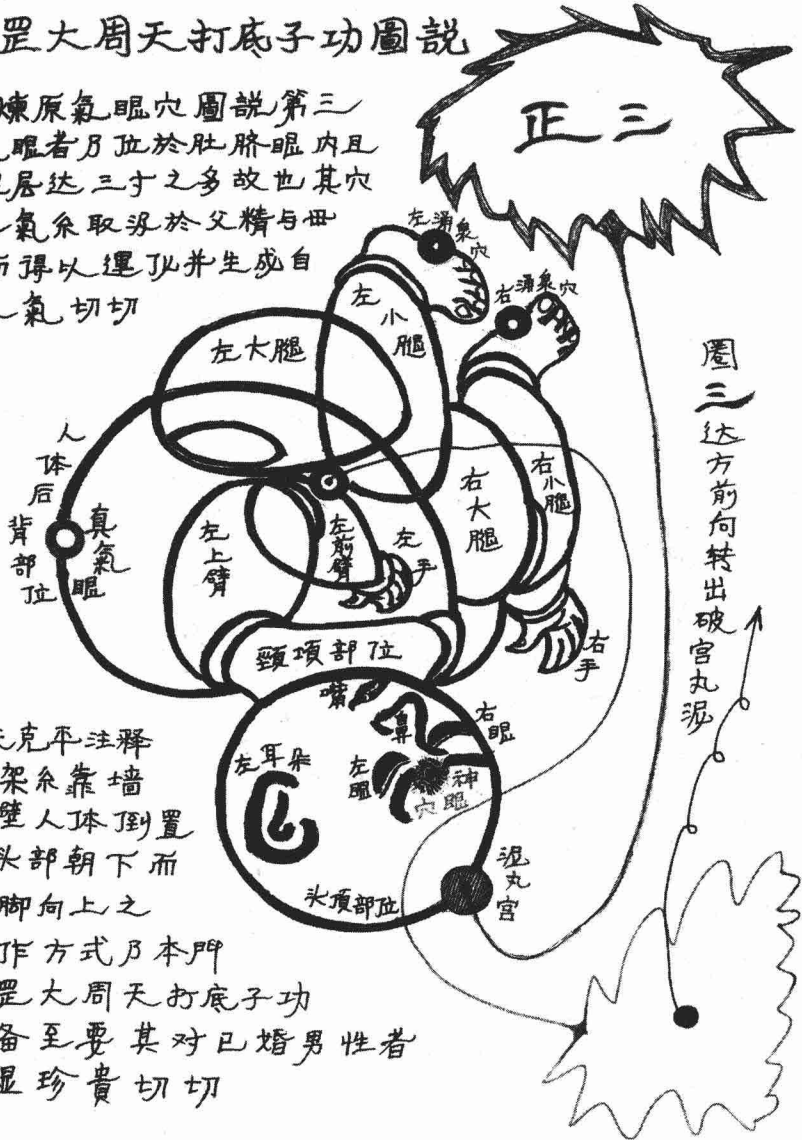 罡大周天打底子功圖説
煉原氣眼穴圖説第三
眼者乃位於肚脐眼内且
层达三寸之多故也其穴
氣系取汲於父精与母
而得以運化并生成自
氣切切
正三
左涌泉穴
右涌泉穴
左小腿
左大腿
右小腿
右大腿
人体后背部位
真氣眼
左上臂
左前臂
左手
右手
頸項部位
嘴
鼻
右眼
左眼
神眼穴
左耳朵
头頂部位
泥丸宫
圈三达方前向转出破宫丸泥
克平注释
架系靠墙
壁人体倒置
头部朝下而
脚向上之
作方式乃本門
罡大周天打底子功
备至要其对已婚男性者
显珍貴切切